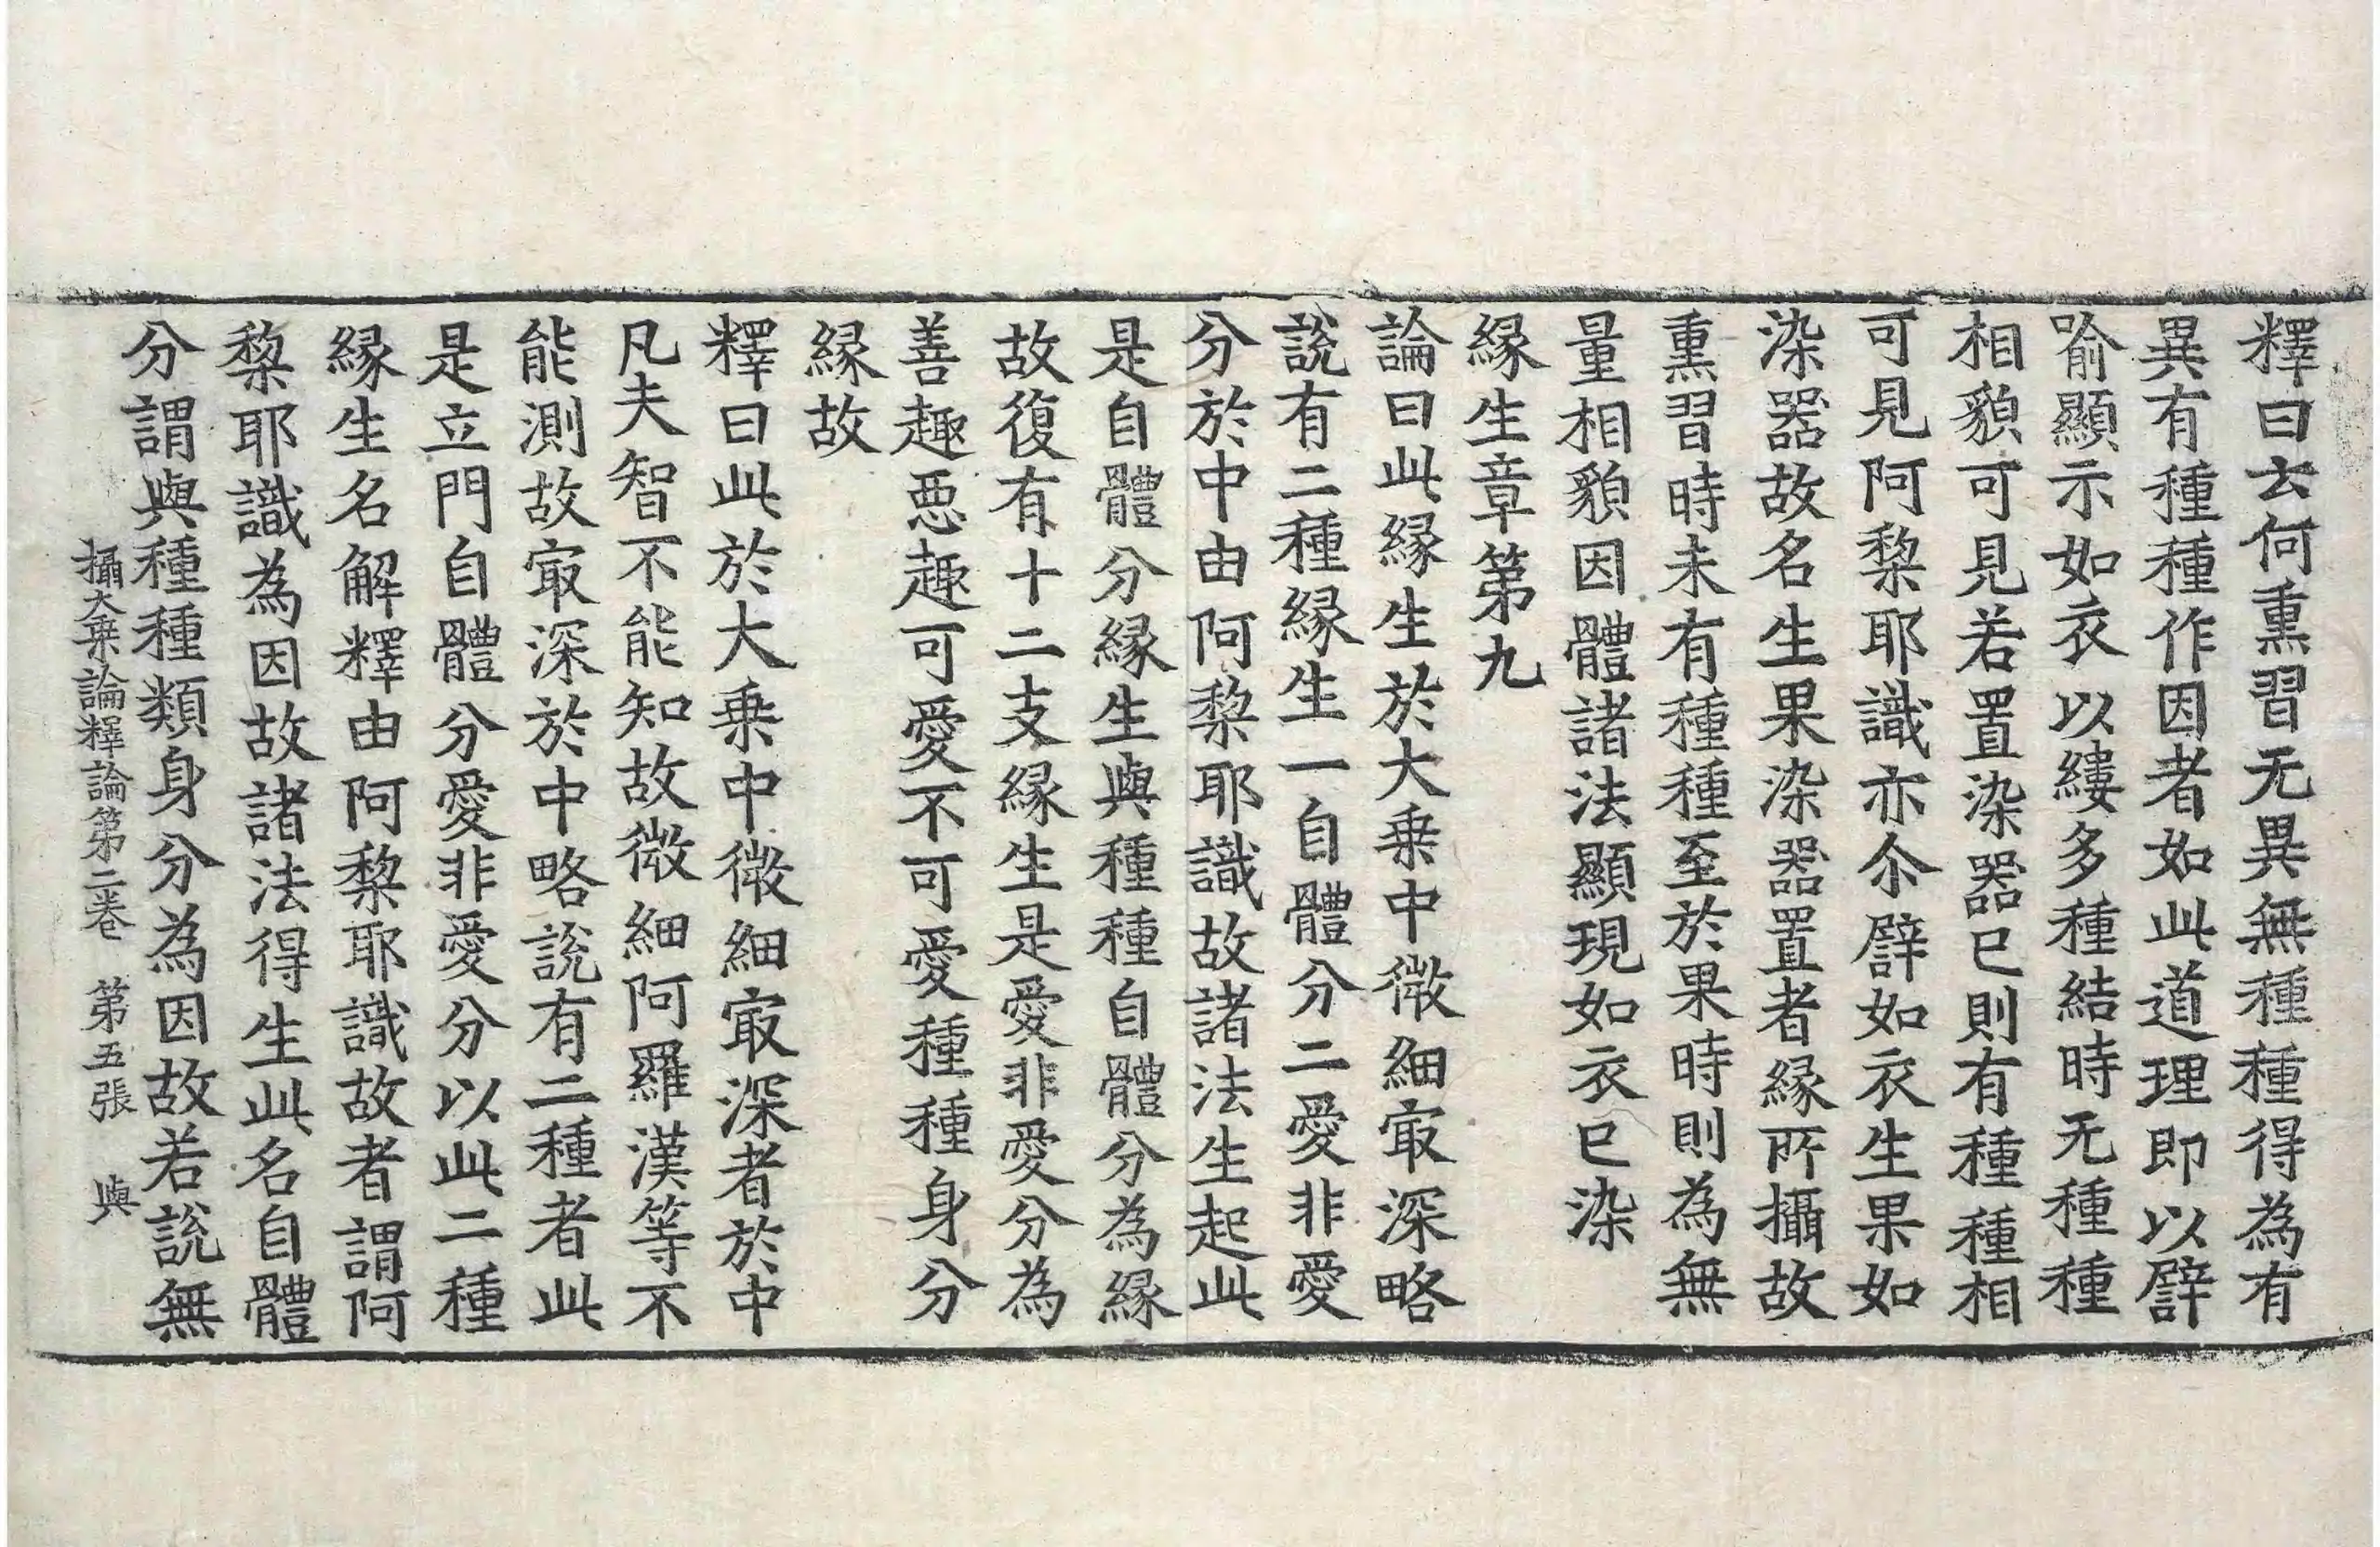 釋曰云何熏習无異無種種得為有
異有種種作因者如此道理即以譬
喻顯示如衣以縷多種結時无種種
相貌可見若置染器已則有種種相
可見阿𥠖耶識亦尒譬如衣生果如
染器故名生果染器置者緣所攝故
熏習時未有種種至於果時則為無
量相貌因體諸法顯現如衣已染
緣生章第九
論曰此緣生於大乗中微細㝡深略
說有二種緣生一自體分二愛非愛
分於中由阿𥠖耶識故諸法生起此
是自體分緣生與種種自體分為緣
故復有十二支緣生是愛非愛分為
善趣惡趣可愛不可愛種種身分
緣故
釋曰此於大乗中微細㝡深者於中
凡夫智不能知故微細阿羅漢等不
能測故㝡深於中略說有二種者此
是立門自體分愛非愛分以此二種
緣生名解釋由阿𥠖耶識故者謂阿
𥠖耶識為因故諸法得生此名自體
分謂與種種類身分為因故若說無
攝大乗論釋論第二卷 第五張 與